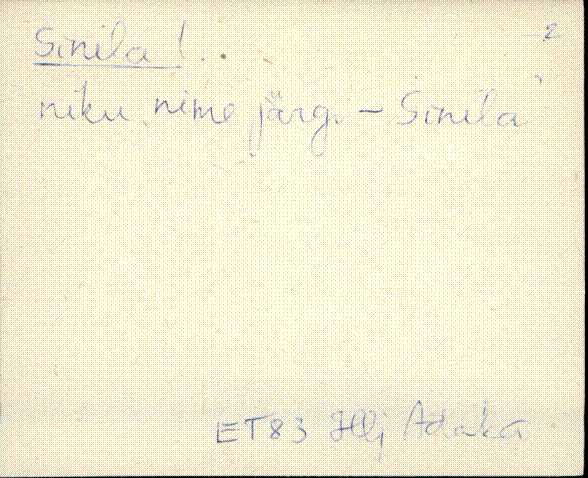 2
Sinila l..
niku nime järg. - Sinila
ET83 Hlj Adaka